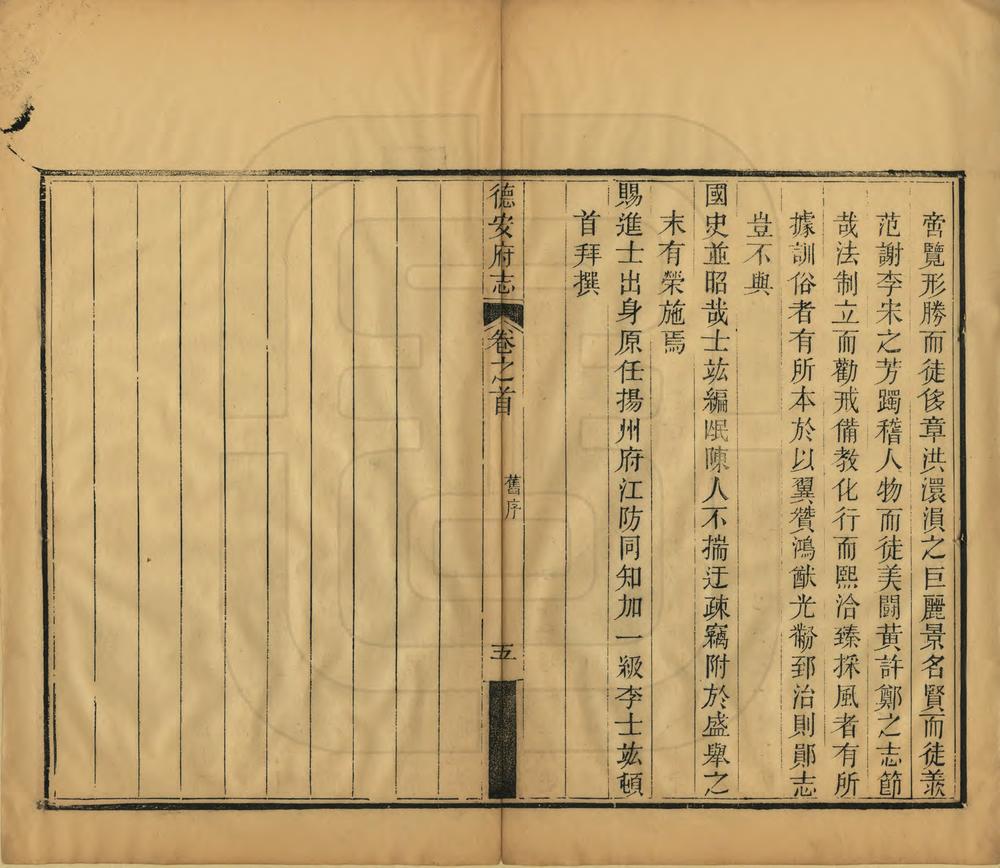 啻覽形勝而徒侈章洪澴溳之巨麗景名賢而徒羨
范謝李宋之芳躅稽人物而徒美鬪黃許鄭之志節
哉法制立而勸戒備教化行而熙洽臻採風者有所
據訓俗者有所本於以翼贊鴻猷光黼郅治則鄖志
豈不與
國史並昭哉士竑編氓陳人不揣迂疎竊附於盛舉之
末有榮施焉
賜進士出身原任揚州府江防同知加一級李士竑頓
首拜撰
德安府志 卷之首 舊序 五